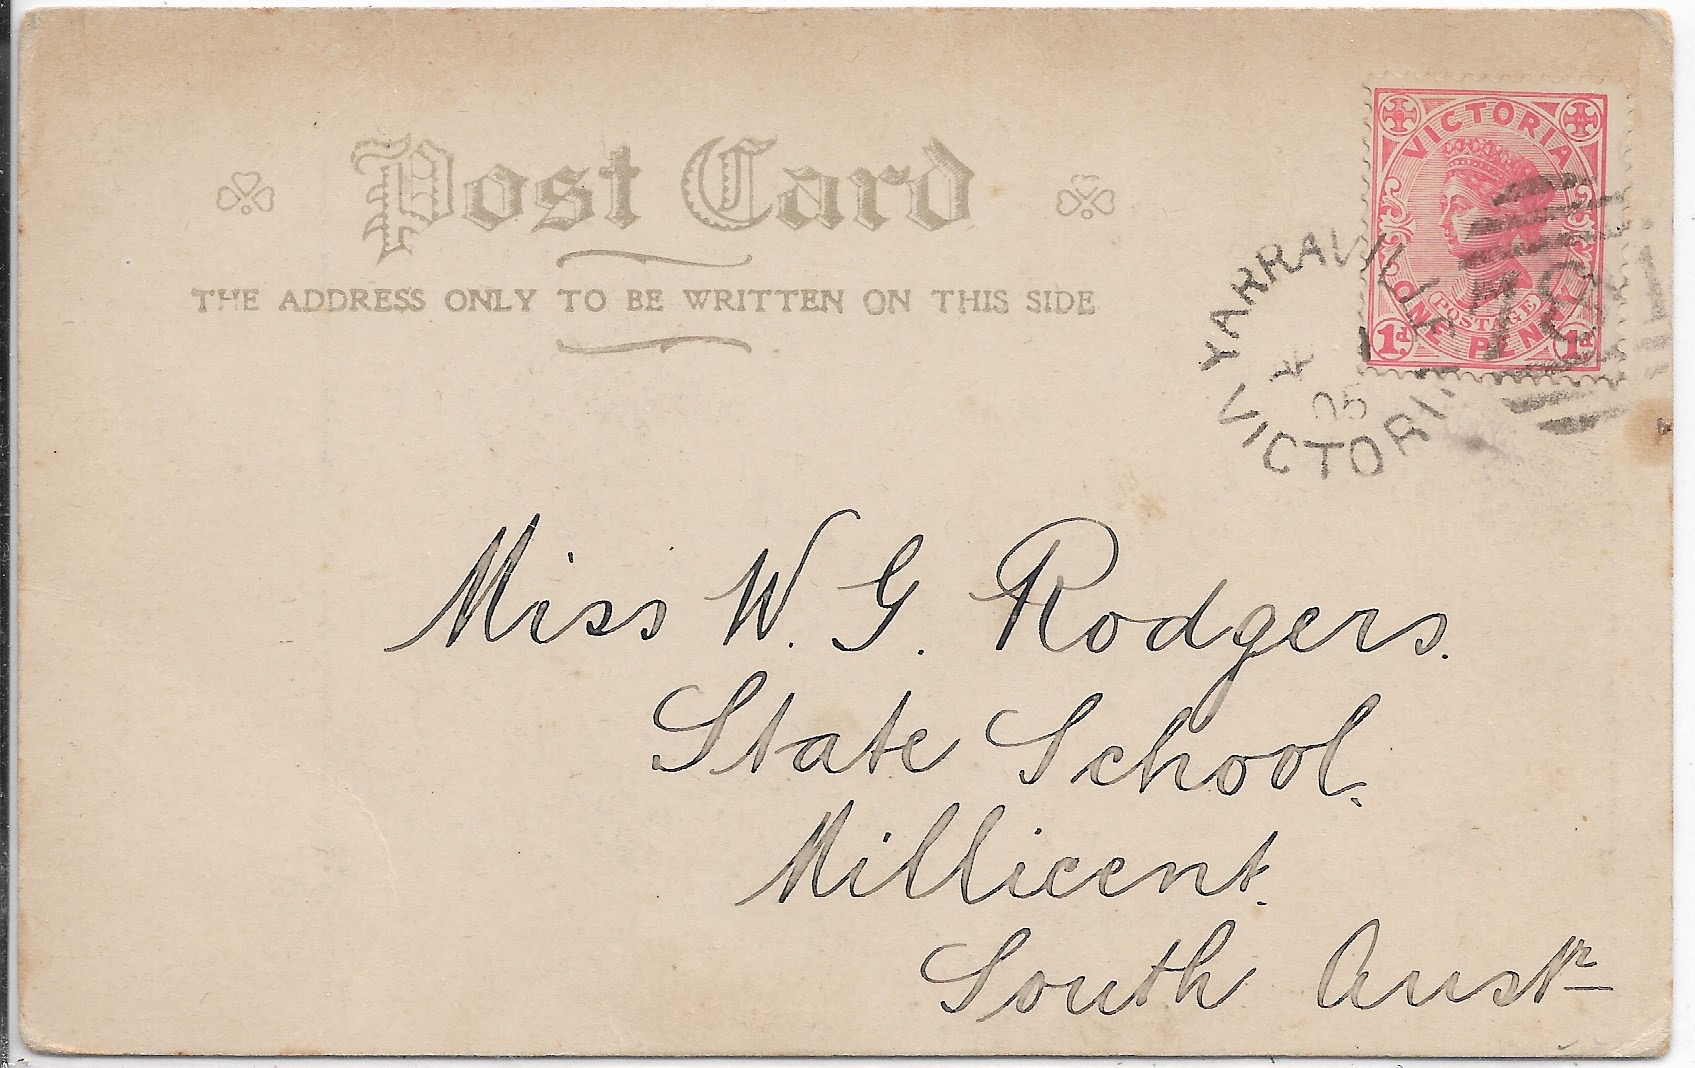 Post Card
THE ADDRESS ONLY TO BE WRITTEN ON THIS SIDE
VICTORIA
POSTAGE
ONE PENNY
1d 1d
YARRAVILLE
05
VICTORIA
Miss W. G. Rodgers.
State School.
Millicent.
South Austr